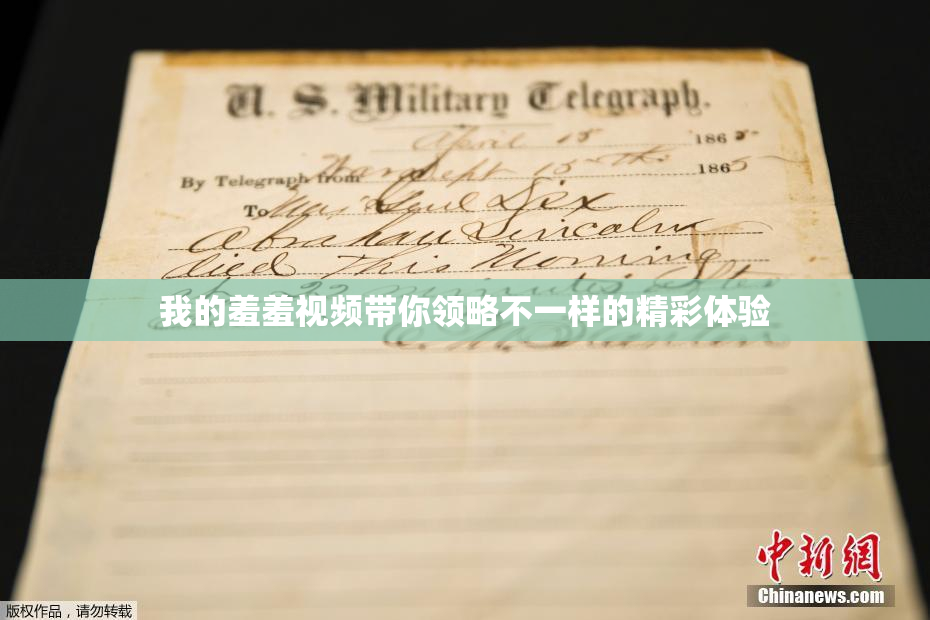 U. S. Military Telegraph.
April 15 1865
By Telegraph from War Dept 15th 1865
To Maj Genl Dix
Abraham Lincoln
died This Morning
at 22 minutes after
我的羞羞视频带你领略不一样的精彩体验
E. M. Stanton
中新网
Chinanews.com
版权作品，请勿转载